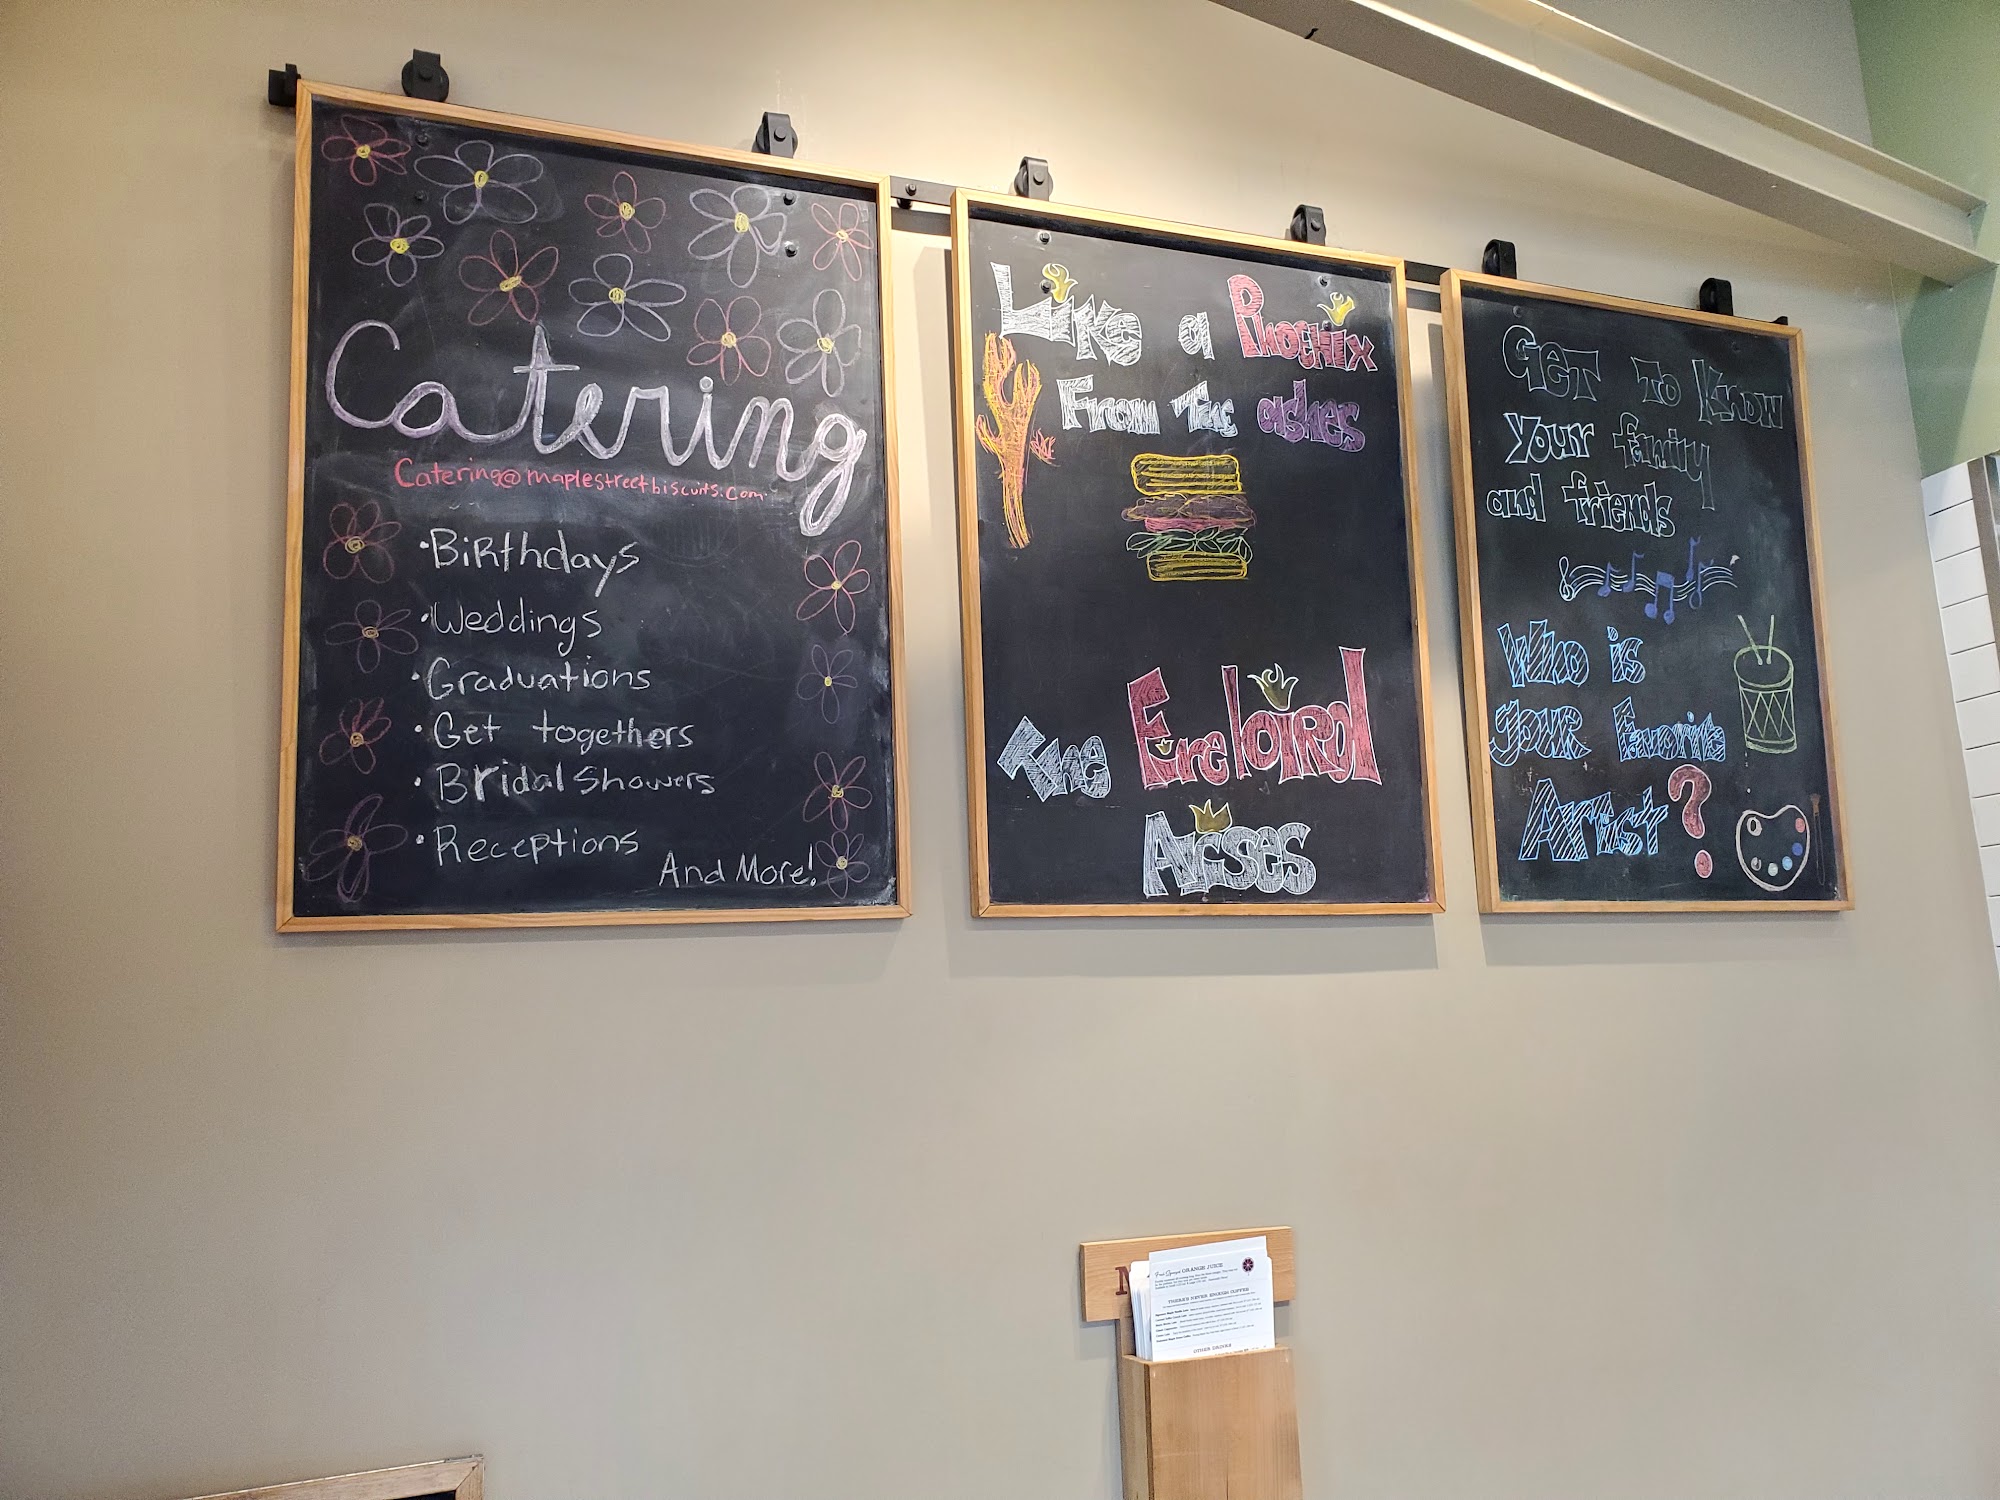 Catering
Catering@maplestreetbiscuits.com
•Birthdays
•Weddings
•Graduations
•Get togethers
•Bridal Showers
•Receptions
And More!
Like a Phoenix
From The ashes
The Firebird
Arises
Get to Know
your family
and friends
Who is
your favorite
Artist?
M
Fresh Squeezed ORANGE JUICE
THERE'S NEVER ENOUGH COFFEE
OTHER DRINKS